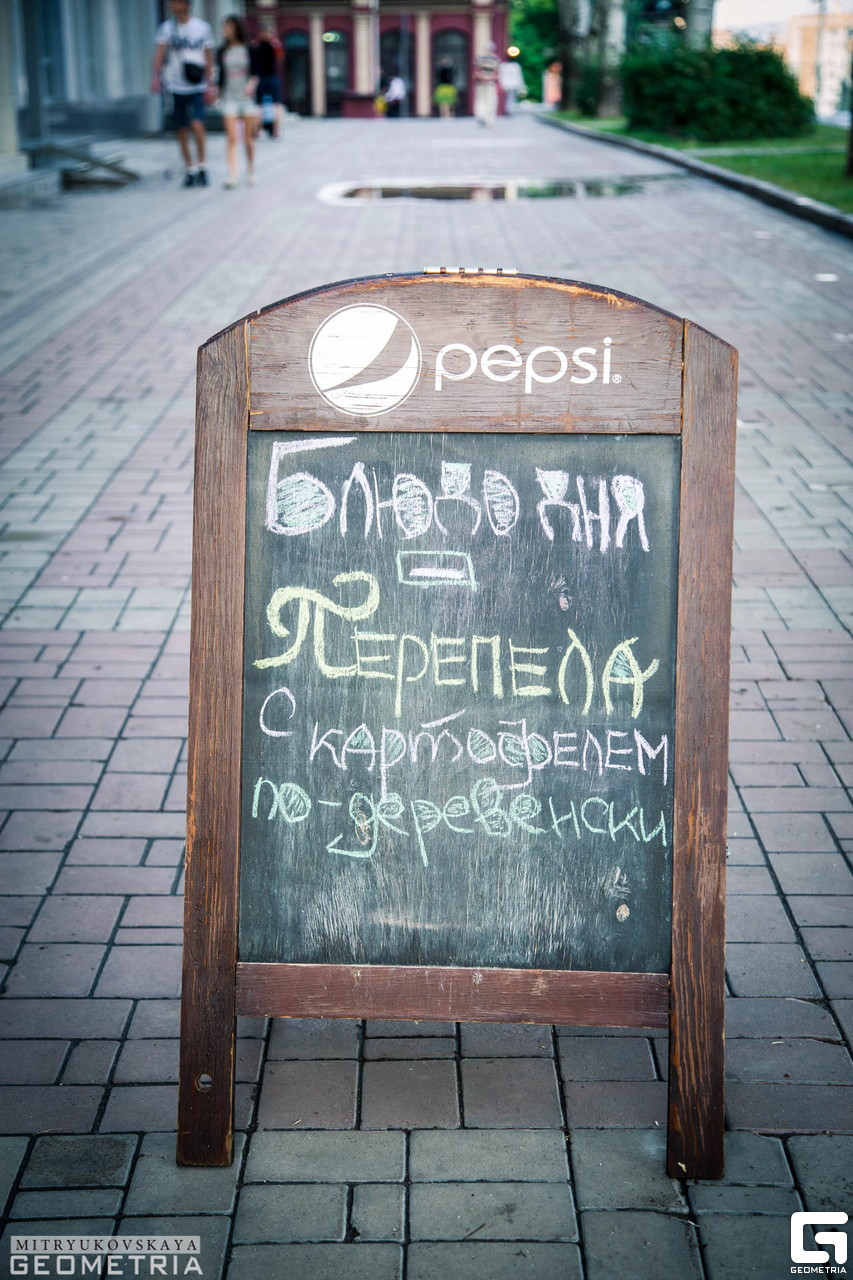 pepsi®
Блюдо дня
-
Перепела
с картофелем
по-деревенски
MITRYUKOVSKAYA
GEOMETRIA
GEOMETRIA